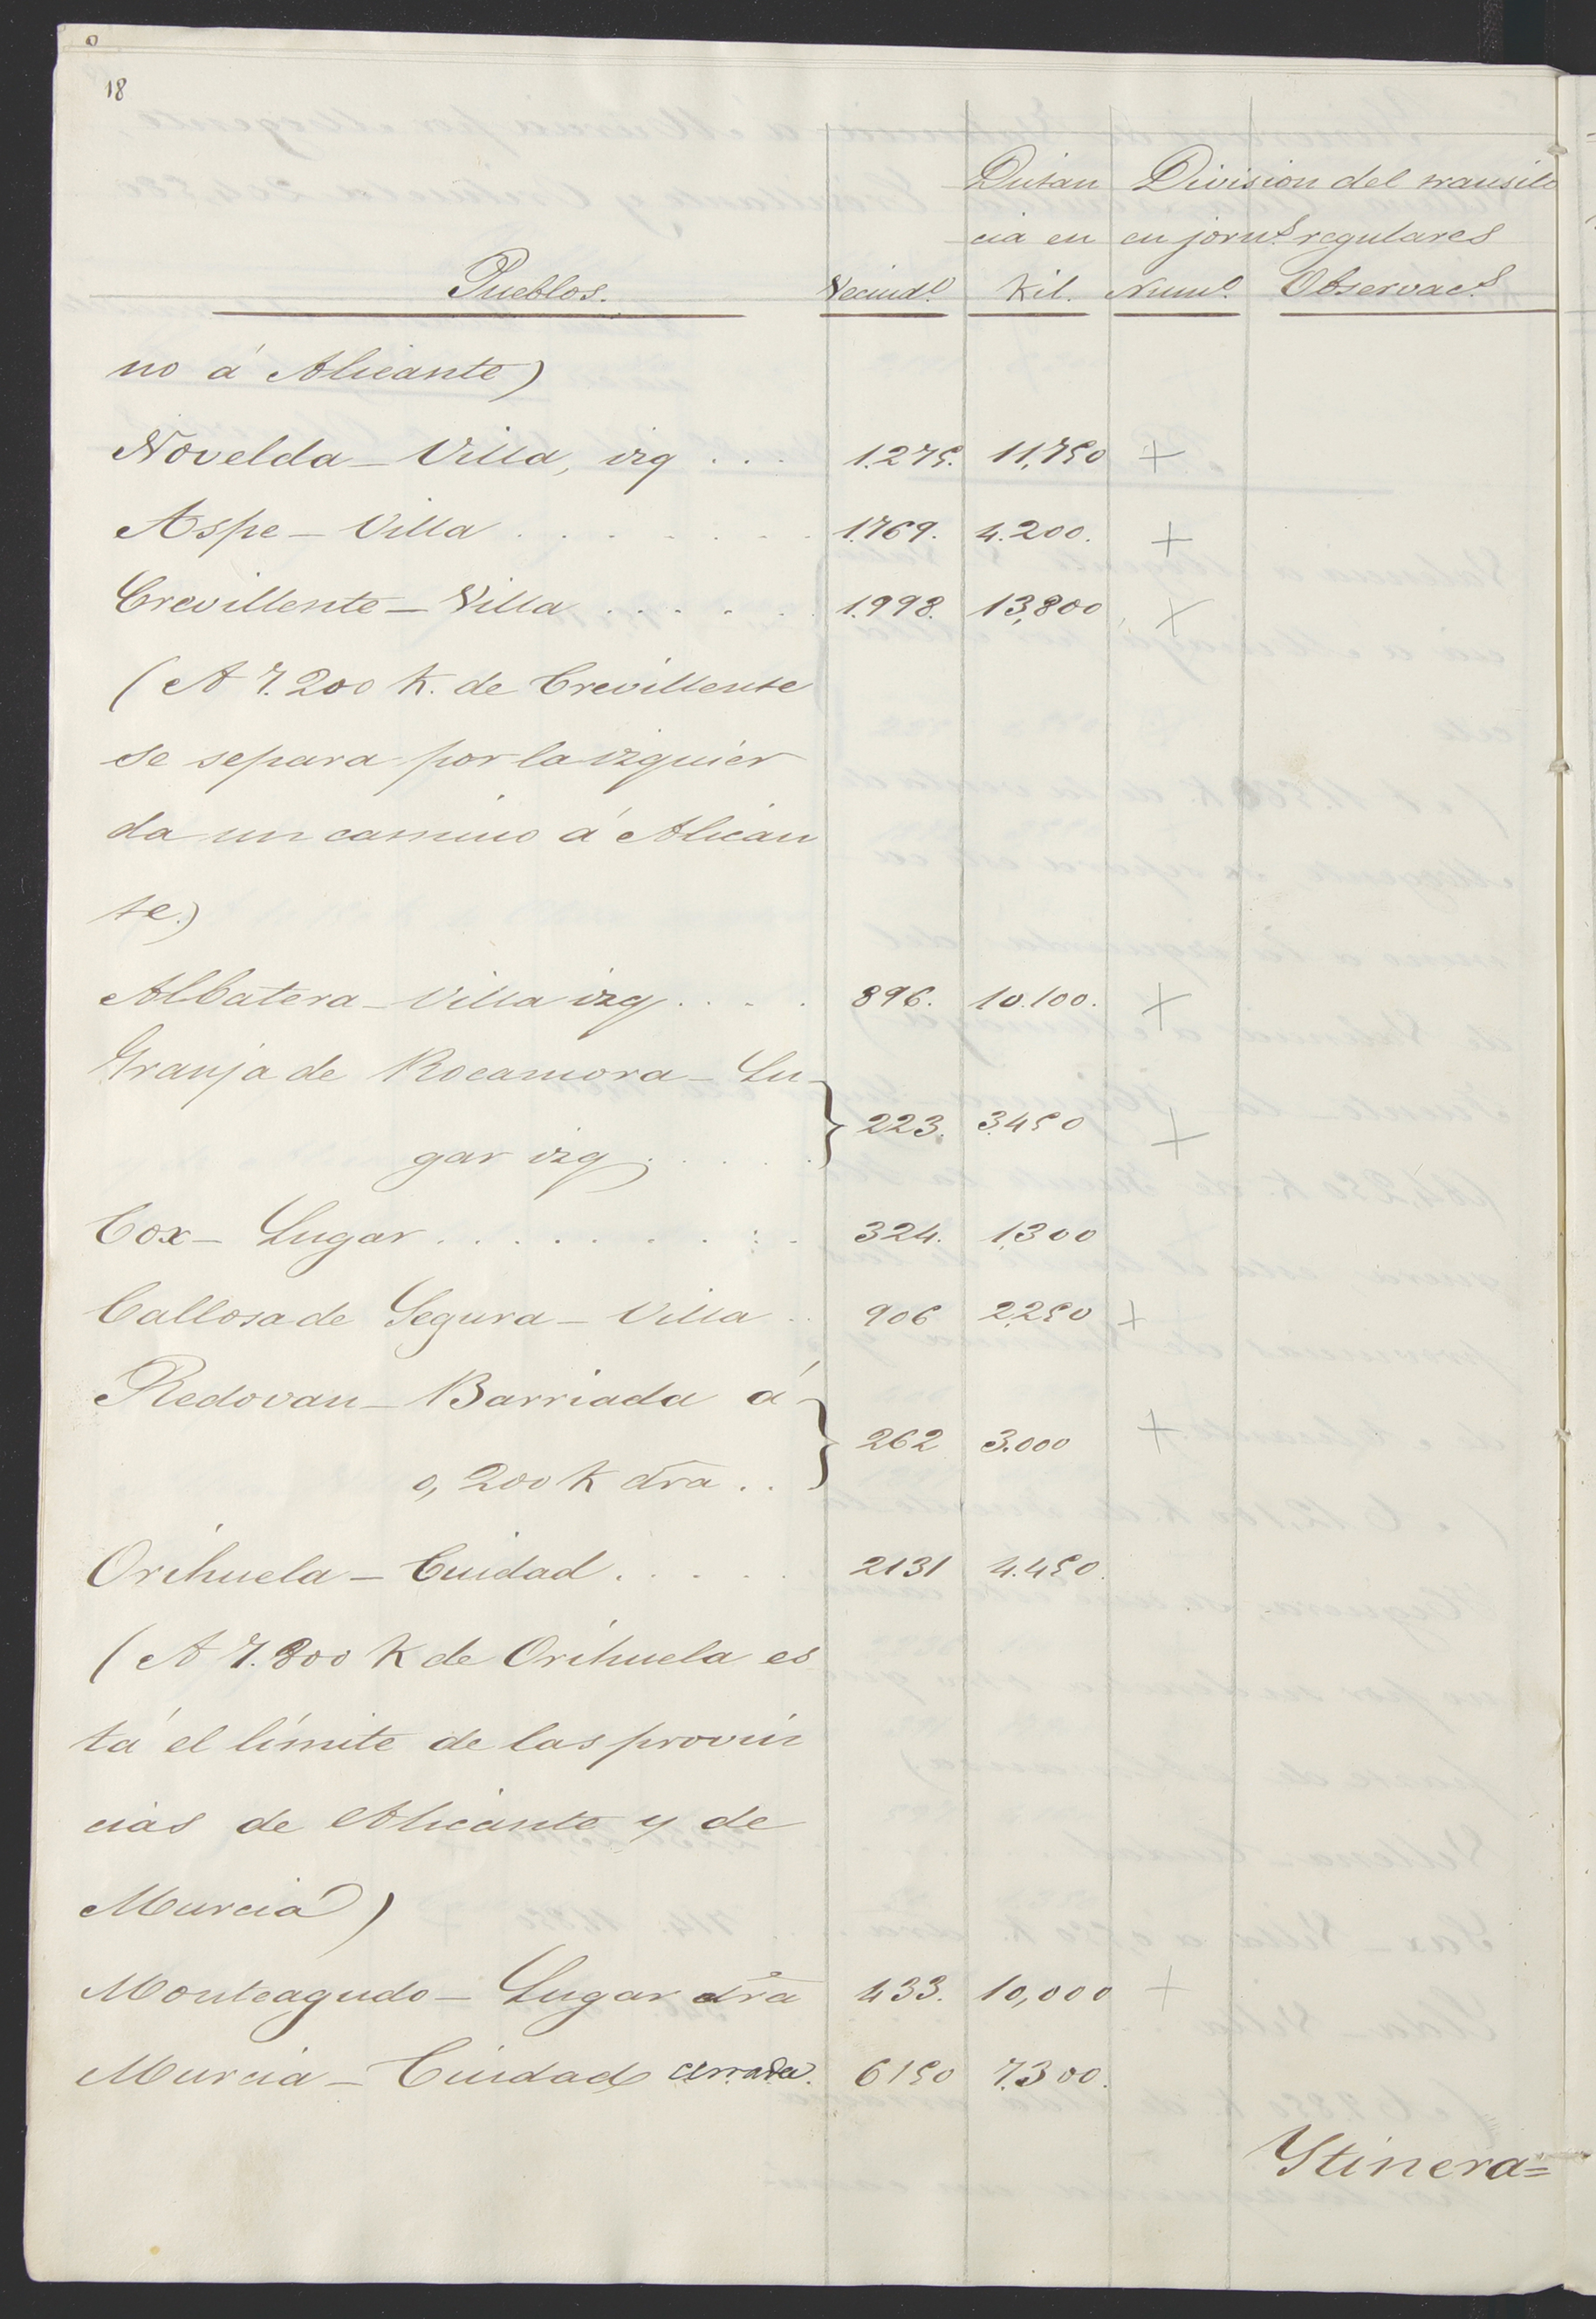 18
Distan Division del transito
cia en en jorns. regulares
Pueblos. Vecindo. Kil. Numo. Observacs.
no á Alicante)
Novelda - Villa, izq . . . 1.275. 11,750 +
Aspe - Villa . . . . . . . . 1.769. 4.200. +
Crevillente - Villa . . . . . . 1.998. 13,800 +
(A 7.200 K. de Crevillente
se separa por la izquier
da un camino á Alican
te.)
Albatera - Villa izq . . . . 896. 10.100. +
Granja de Rocamora - Lu-
gar izq . . . . . } 223. 3.450 +
Cox - Lugar . . . . . . . . . 324. 1,300
Callosa de Segura - Villa . . 906 2,250 +
Redovan - Barriada á
0,200 K dra . . } 262 3.000 +
Orihuela - Ciudad . . . . . 2131 4.450.
(A 7.800 K de Orihuela es
tá el límite de las provin
cias de Alicante y de
Murcia)
Monteagudo - Lugar dra 433. 10,000 +
Murcia - Ciudad cerrada. 6150 7.300.
Ytinera=